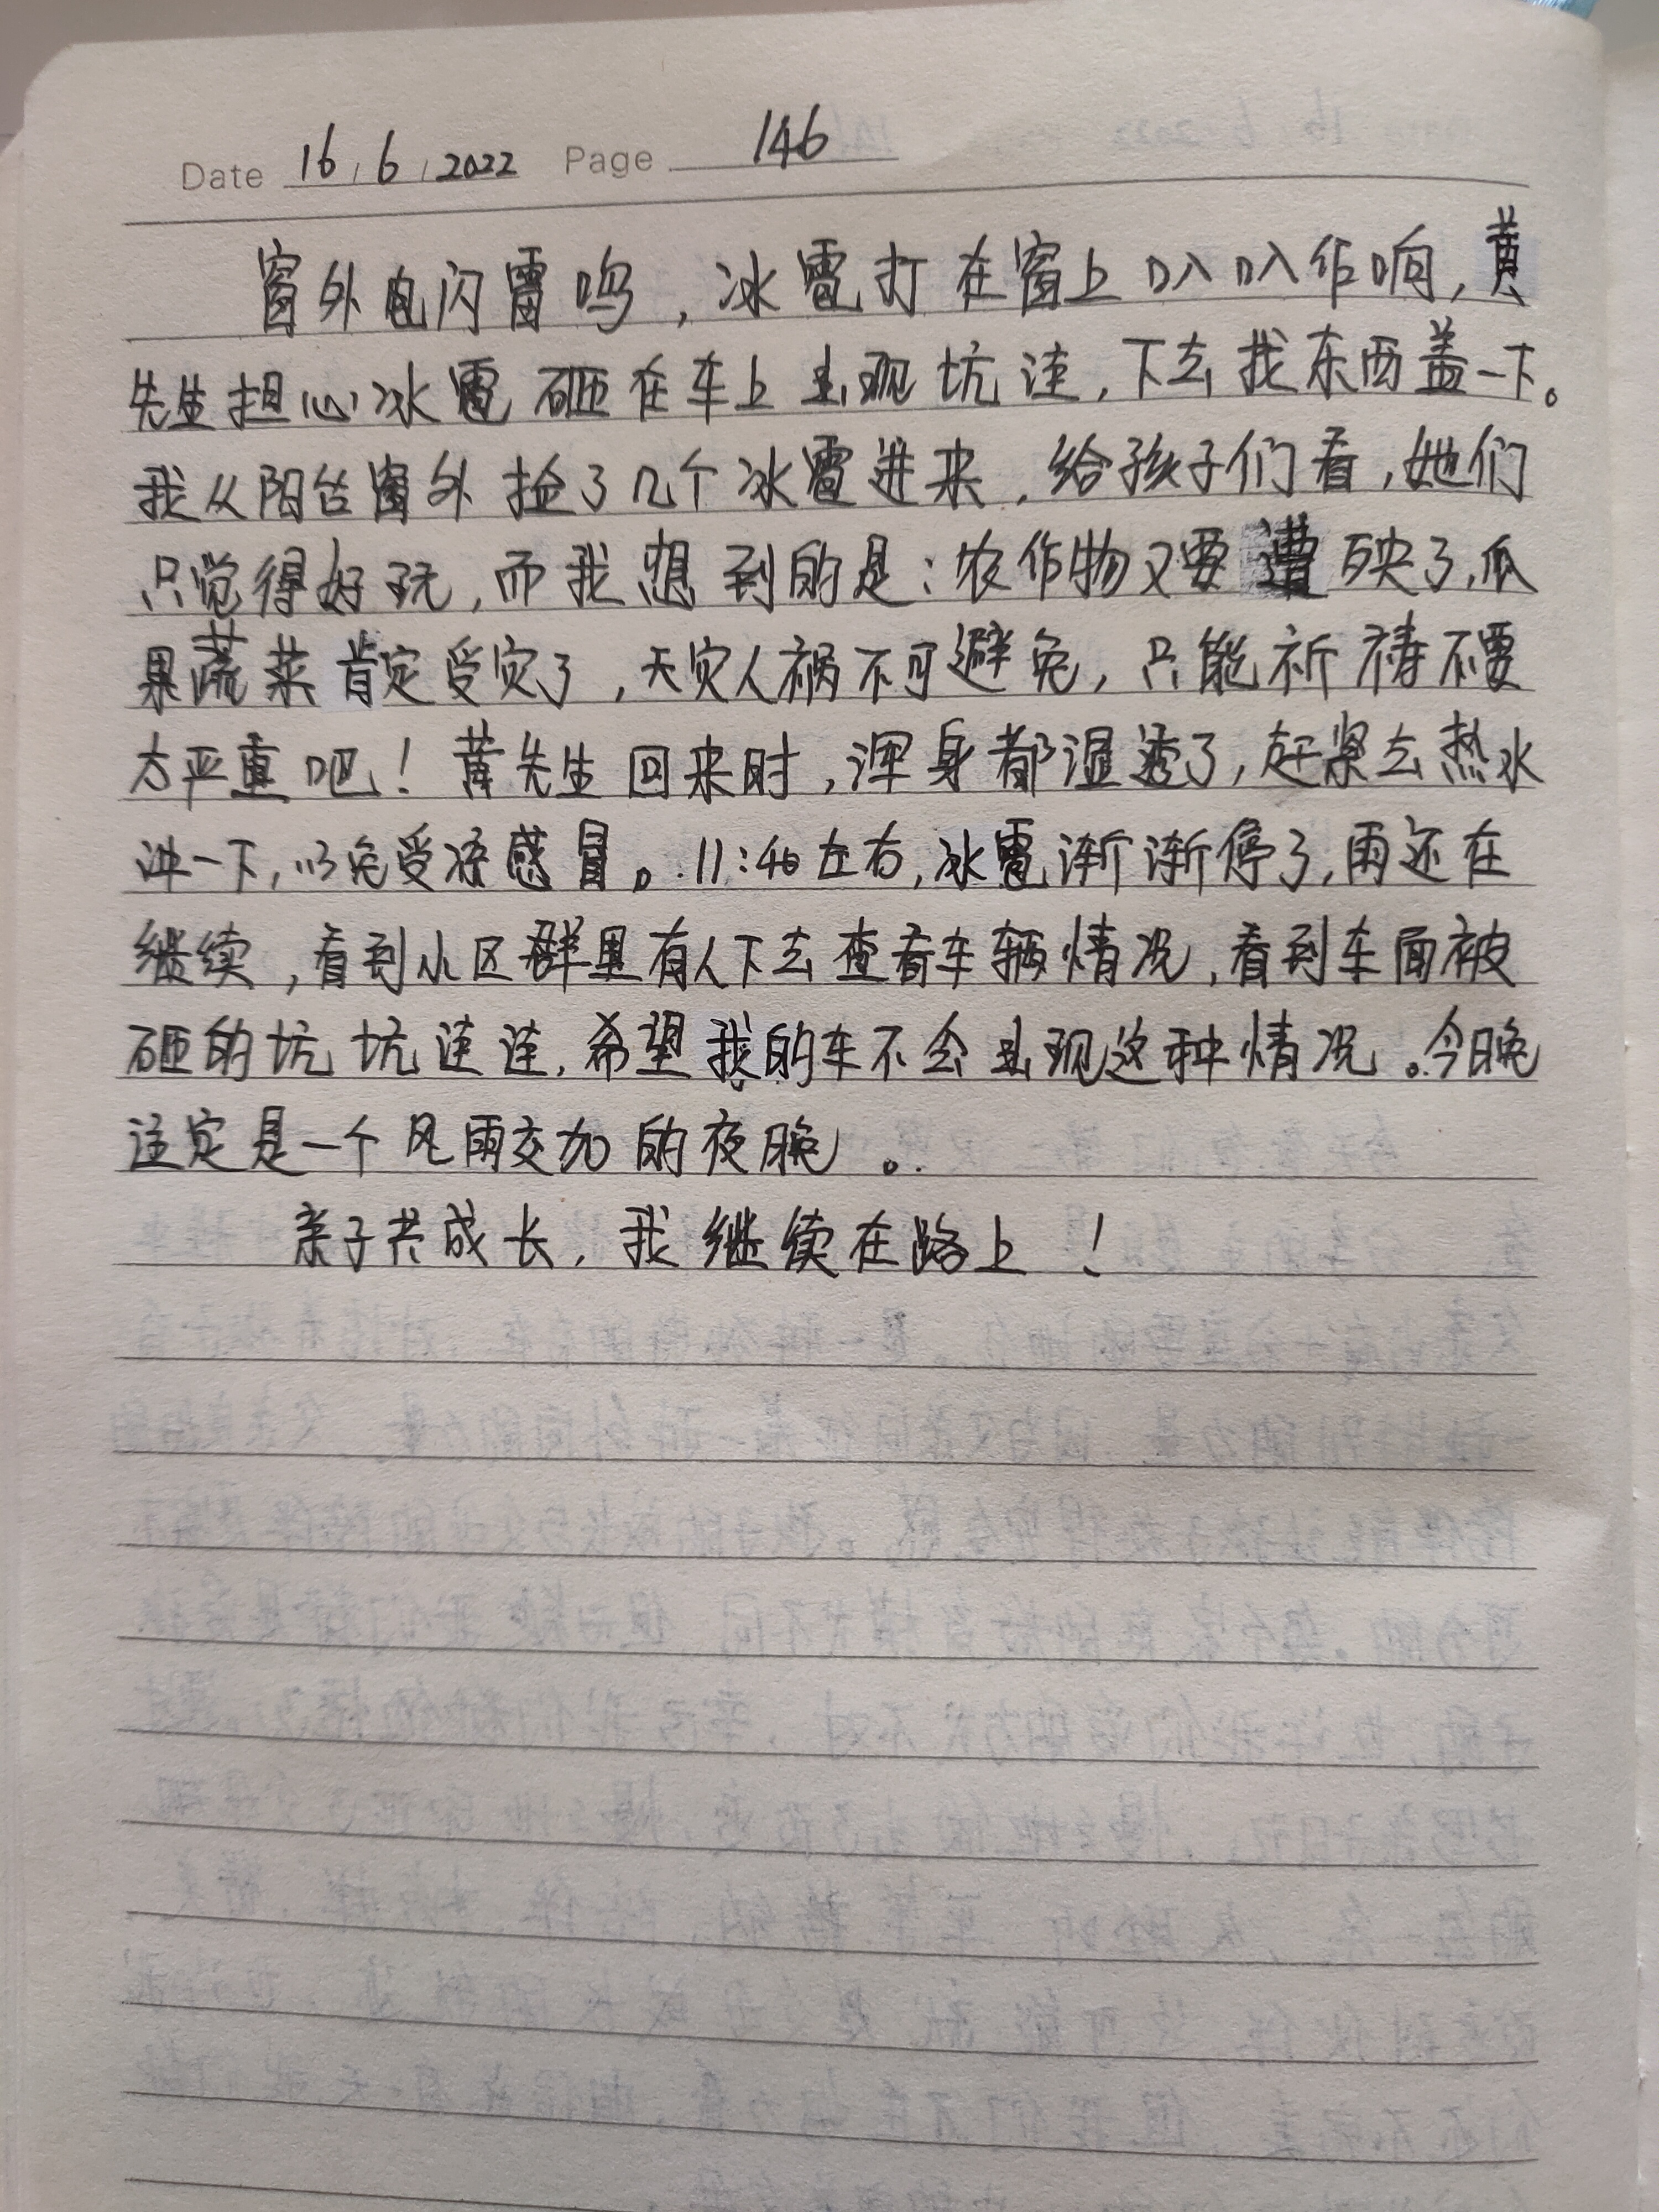 Date 16 / 6 / 2022 Page 146
窗外电闪雷鸣，冰雹打在窗上叭叭作响，黄
先生担心冰雹砸在车上出现坑洼，下去找东西盖一下。
我从阳台窗外捡了几个冰雹进来，给孩子们看，她们
只觉得好玩，而我想到的是：农作物又要遭殃了，瓜
果蔬菜肯定受灾了，天灾人祸不可避免，只能祈祷不要
太严重吧！黄先生回来时，浑身都湿透了，赶紧去热水
冲一下，以免受凉感冒。11:40左右，冰雹渐渐停了，雨还在
继续，看到小区群里有人下去查看车辆情况，看到车面被
砸的坑坑洼洼，希望我的车不会出现这种情况。今晚
注定是一个风雨交加的夜晚。
亲子共成长，我继续在路上！